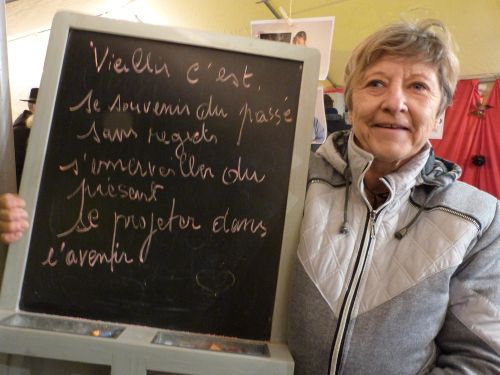 Vieillir c'est,
se souvenir du passé
sans regrets
s'émerveiller du
présent
se projeter dans
l'avenir